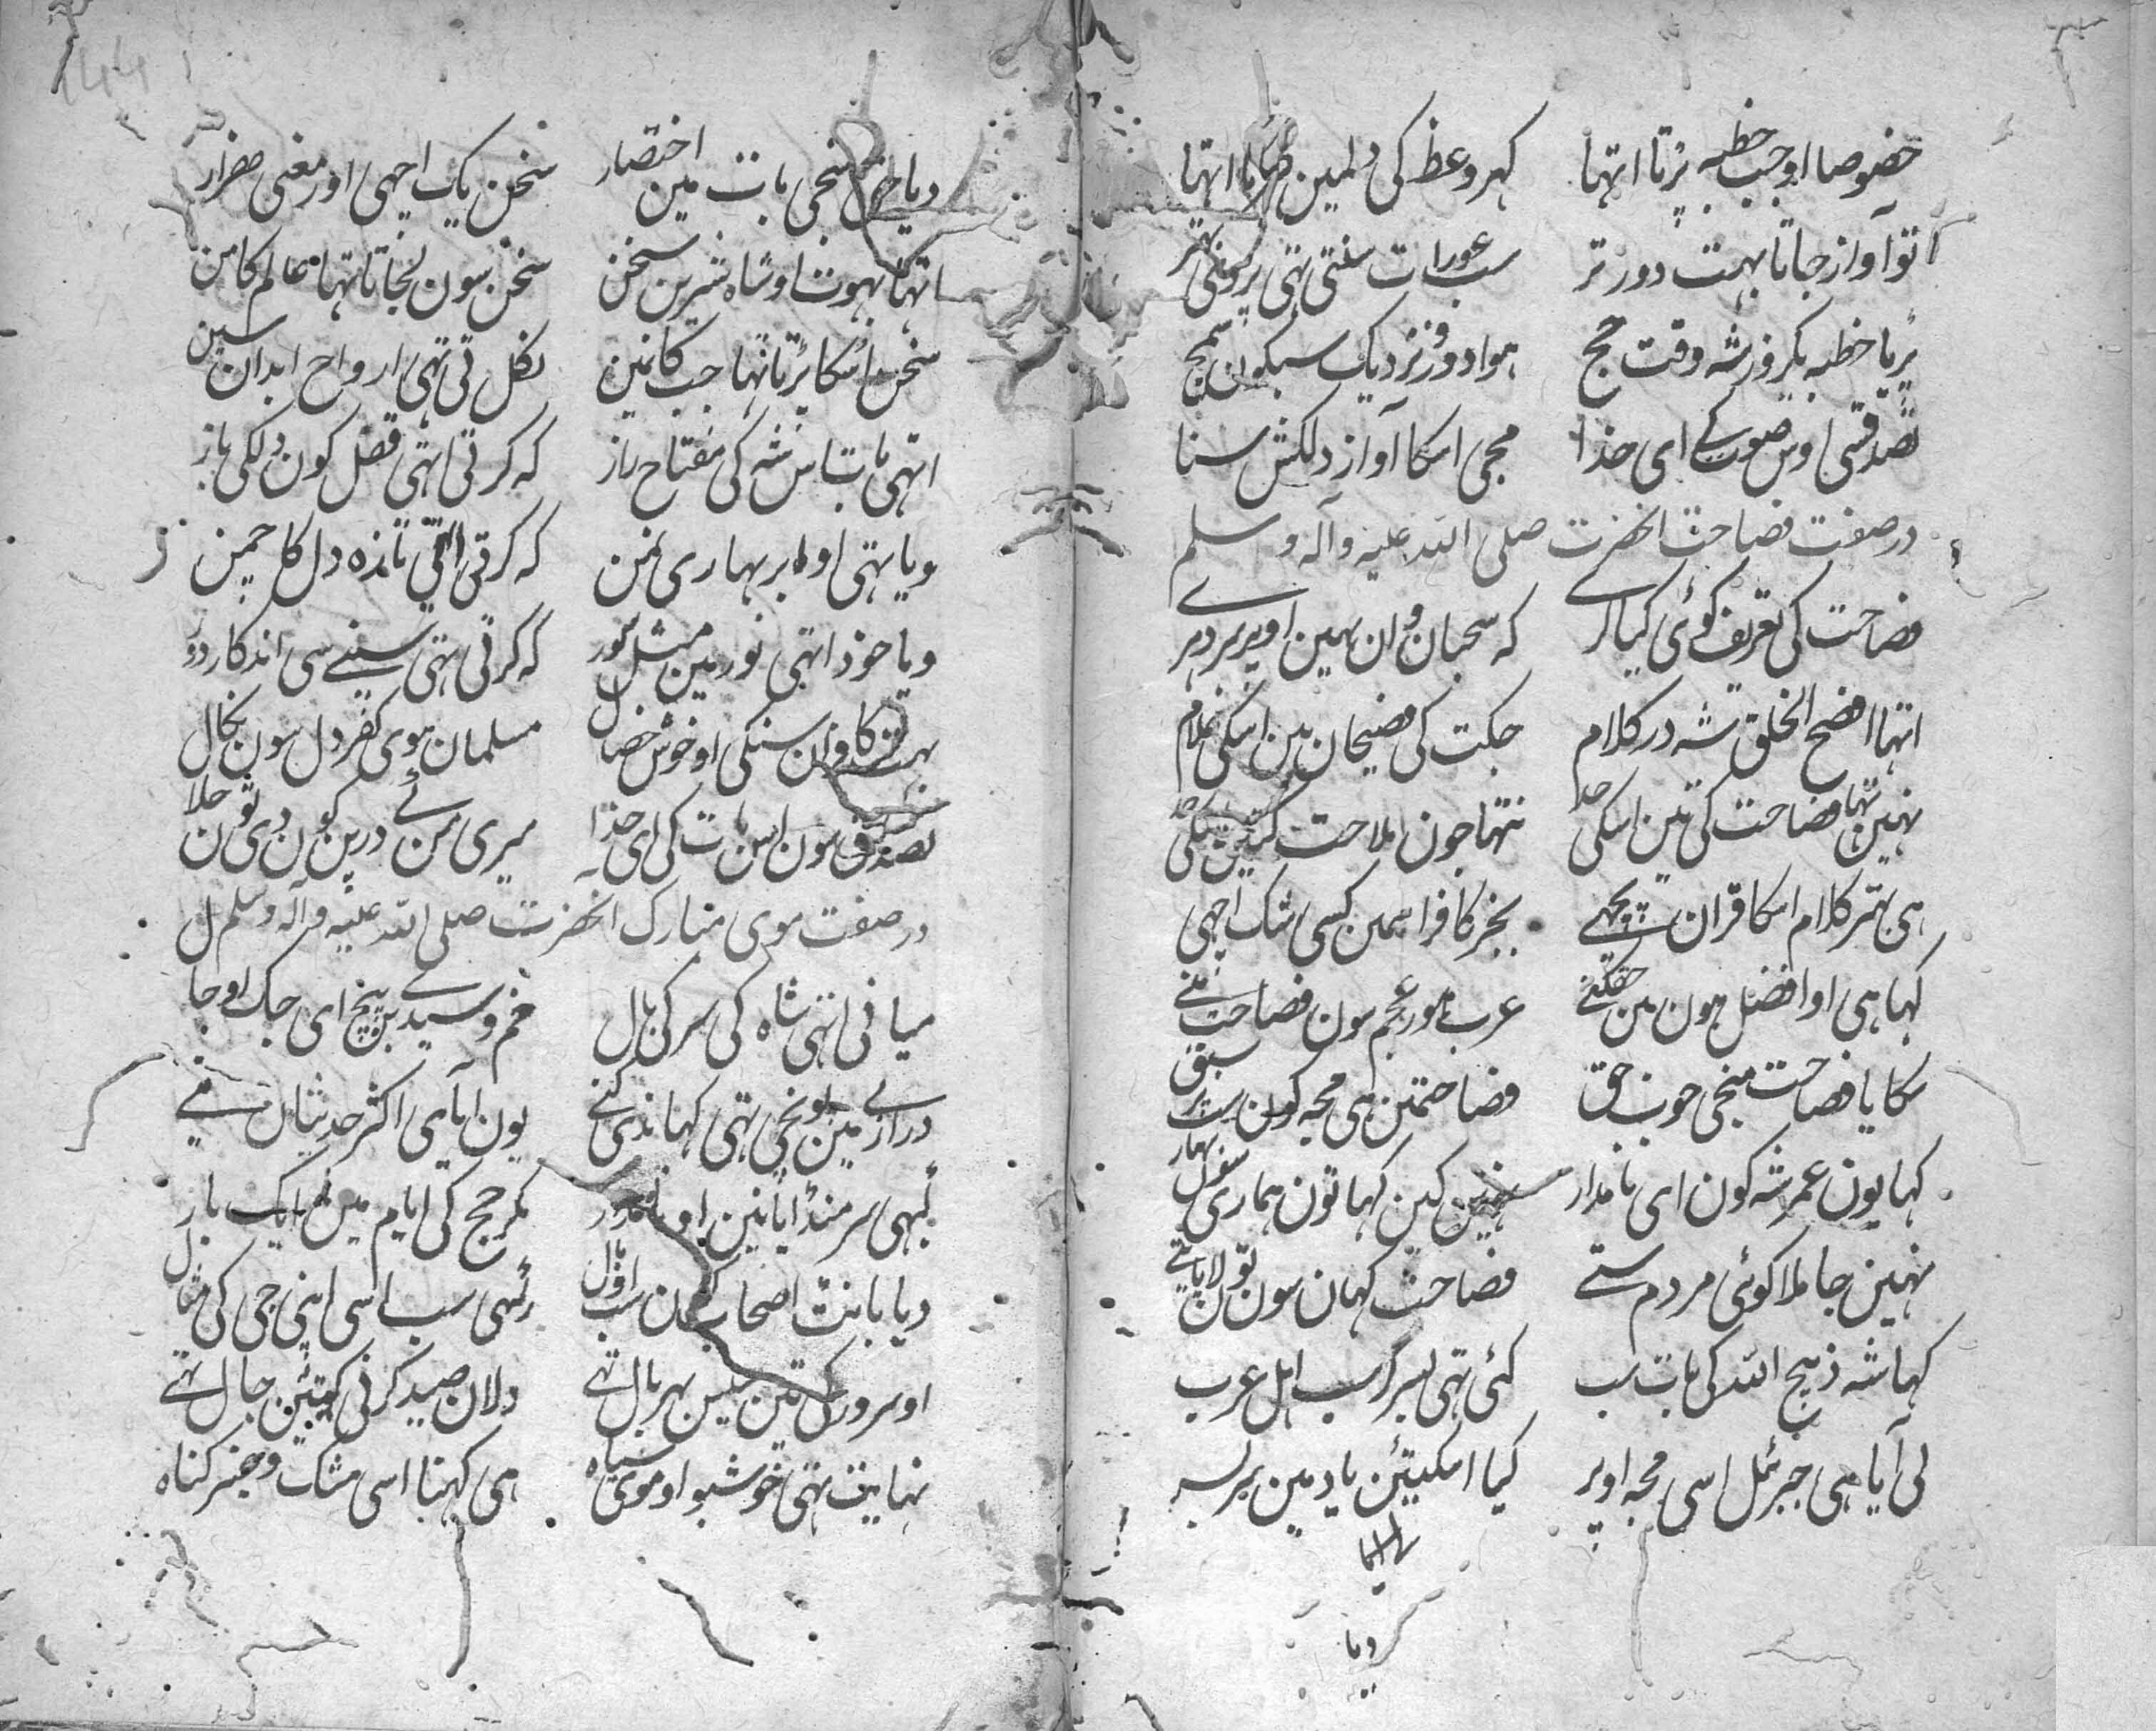 خصوصا او جب خطبہ پڑتا اتہا کہر وعظ کی دلمین اتہا
اتو آواز جاتا بہت دور تر سب عورات سنتی تہی
پڑیا خطبہ یکروز شہ وقت حج ہوا دور نزدیک سبکون سمج
تصدقسی اوس صوت کے ای خدا مجی اسکا آواز دلکش سنا
در صفت فصاحت انحضرت صلی اللہ علیہ وآلہ وسلم
فصاحت کی تعریف کوئی کیا کرے کہ سحبان وان نہین اوپر سر دہرے
اتہا افصح الخلق شہ در کلام جکت کی فصیحان ہین اسکی غلام
نہین تہا فصاحت کی تین اسکی حد نتہا جون ملاحت کیتین حد
ہی بہتر کلام اسکا قران پچہے بجز کافر اسمین کسی شک اچہی
کہا ہی او افضل ہون من عرب ہور عجم سون فصاحت منے
سکایا فصاحت منجی خوب حق فصاحتمین ہی مجہ کون سب پر سبق
کہا یون عمر شہ کون ای نامدار نہین کین کہا تون ہماری سون بہار
نہین جا ملا کوئی مردم ستے فصاحت کہان سون تون لایا
کہا شہ ذبیح اللہ کی بات سب گئی تہی بسر کر سب اہل عرب
لی آیا ہی جبرئیل اسی مجہ اوپر کیا اسکیتین یاد مین سر بسر
دیا
دیا حق منجی بات مین اختصار سخن یک اچہی اور معنی ہزار
اتہا بہوت او شاہ شرین سخن سخن سون لجاتا تہا عالم کا من
سخن اسکا پڑتا تہا جب کانمین نکل تی تہی ارواح ابدان سین
اتہی بات اس شہ کی مفتاح راز کہ کرتی اتہی قفل کون دلکی باز
ویا تہی او ابر بہاری نمن کہ کرتی اتہی تازہ دل کا چمن
ویا خود اتہی نور مین مثل سور کہ کرتی تہی سینے سی اندکار دور
بہت کافران سنکی او خوش خصال مسلمان ہوی کفر دل سون نکال
تصدق سون اس بات کی ای خدا میری من کے درپن کون دی تون جلا
در صفت موی مبارک انحضرت صلی اللہ علیہ وآلہ وسلم
میانی اتہی شاہ کی سر کی بال خم و
درازے مین پونچی تہی کہاندی لگنے یون آیا ہی اکثر حدیثان منے
کبہی سر منڈایا نین او نامدار مگر حج کی ایام مین ایک بار
دیا بانٹ اصحاب کون سب او بال رکہی سب اسی اپنی جی کی مثال
او سرور کی تین بہر بال تہے دلان صید کرنی کیتین جال تہے
نہایت تہی خوشبو او موی سیاہ ہی کہنا اسی مشک و عنبر گناہ